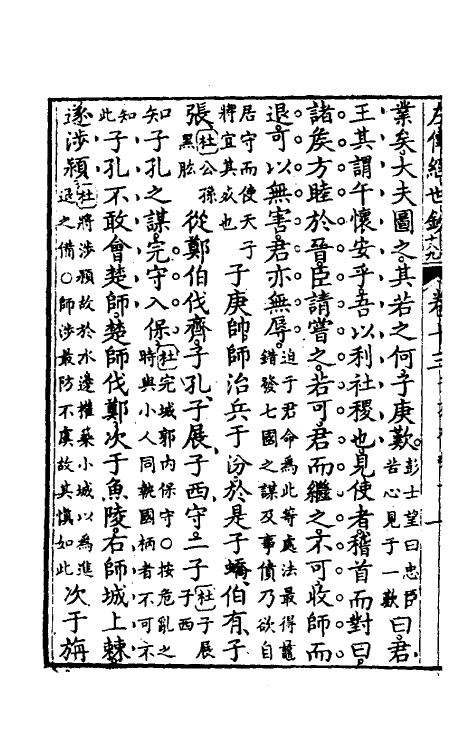 左傳經世鈔十九 卷十三
業矣大夫圖之其若之何子庚歎彭士望曰忠臣苦心見于一歎曰君
王其謂午懷安乎吾以利社稷也見使者稽首而對曰
諸矦方睦於晉臣請嘗之若可君而繼之不可收師而
退可以無害君亦無辱迫于君命爲此等處法最得錯發七國之謀及事僨乃欲自
居守而使天子將宜其敗也子庚帥師治兵于汾於是子蟜伯有子
張杜公孫黑肱從鄭伯伐齊子孔子展子西守二子杜子展子西
知子孔之謀完守入保杜完城郭內保守○按危亂之時與小人同執國柄者不可不
知此子孔不敢會楚師楚師伐鄭次于魚陵右師城上棘
遂涉潁杜將涉潁故於水邊權築小城以爲進退之備○師涉最防不虞故其慎如此次于旃